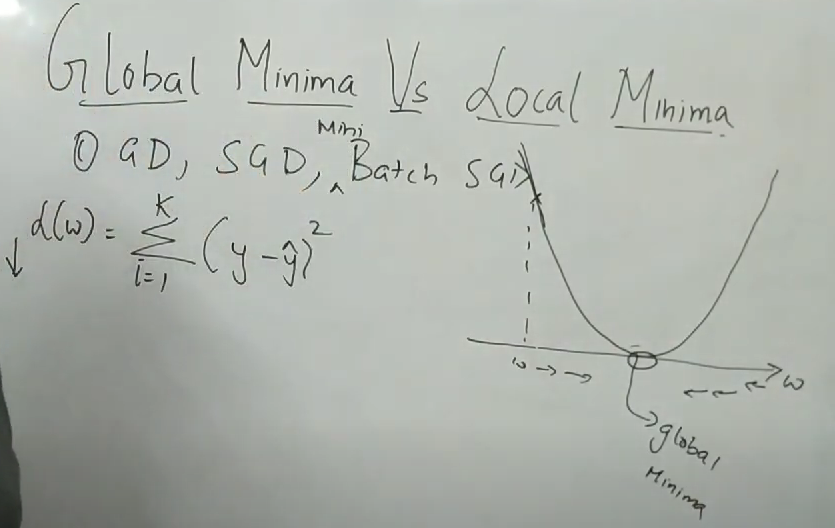 Global Minima Vs Local Minima
① GD, SGD, Mini Batch SGD
↓ L(w) = K Σ i=1 (y - ŷ)²
w → →
← ← ← w
global
Minima